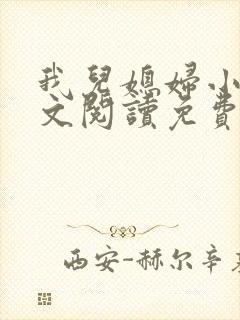 我兒媳婦小
文閱讀免費
西安-赫尔辛